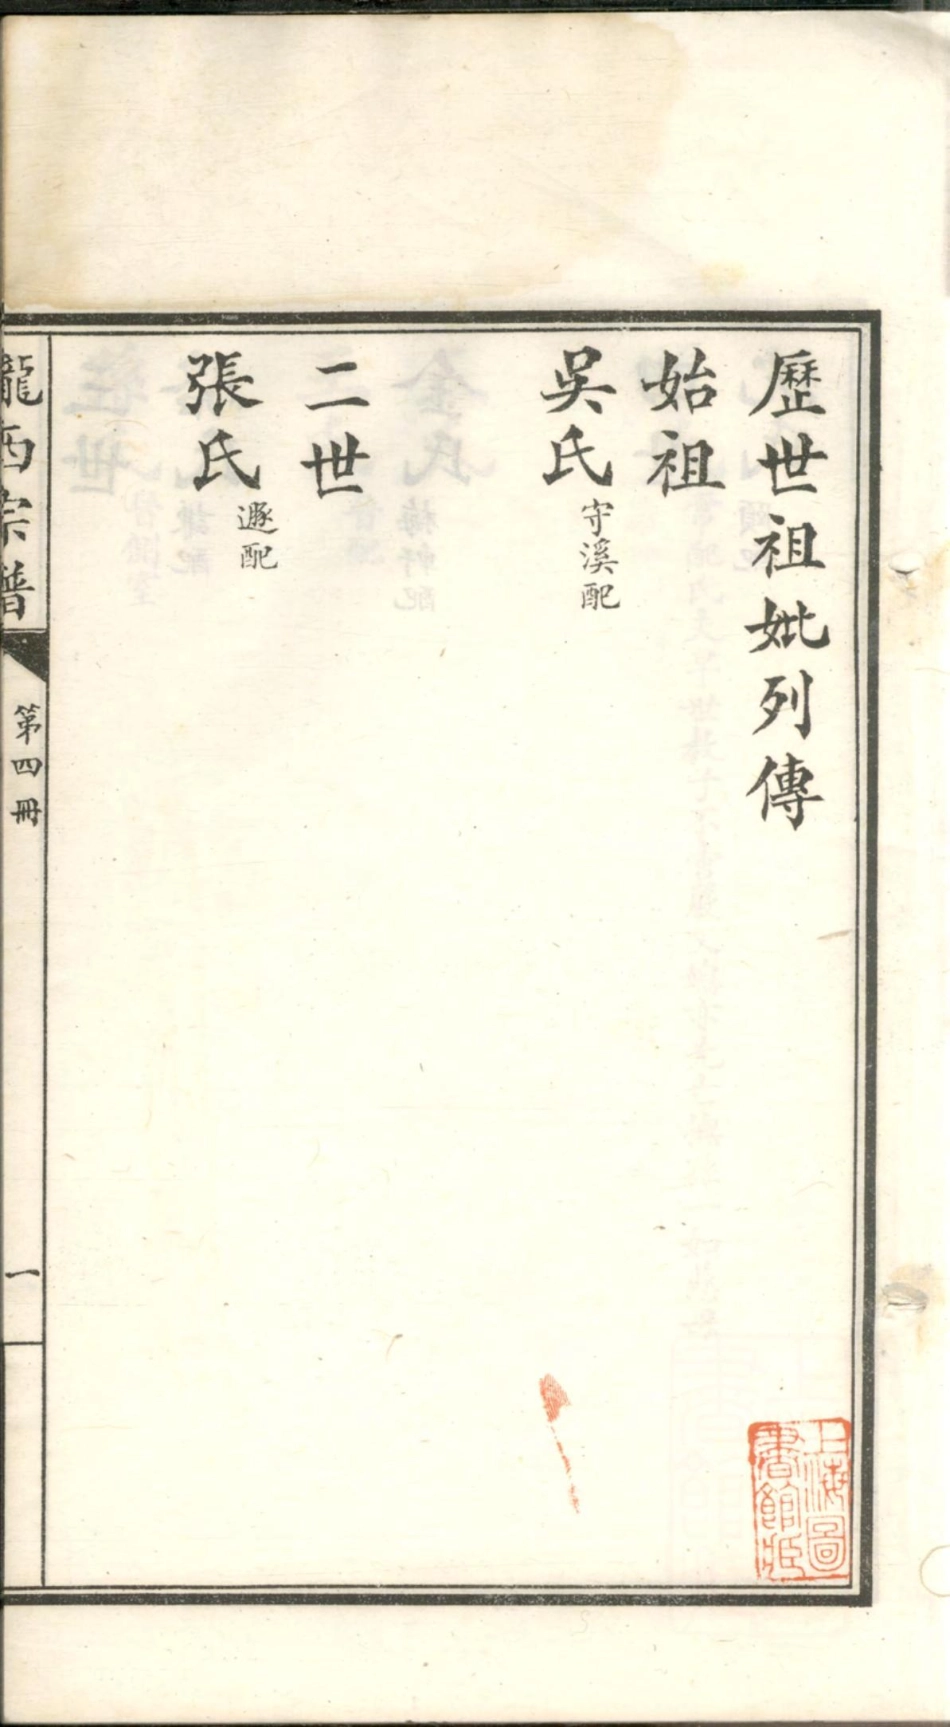 歷世祖妣列傳
始祖
吳氏 守溪配
二世
張氏 遯配
隴西宗譜
第四冊
一
上海圖
書館藏